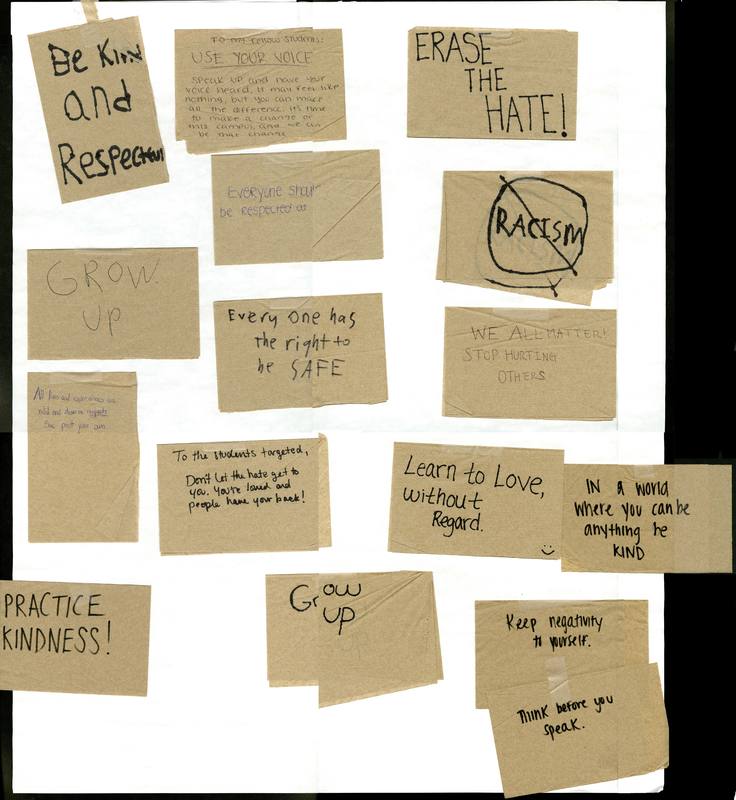 Be Kind
and
Respectful
To my fellow students:
USE YOUR VOICE
Speak up and have your
voice heard, it may feel like
nothing, but you can make
all the difference. It's time
to make a change on
this campus, and we can
be that change
ERASE
THE
HATE!
Everyone should
be respected
RACISM
GROW
UP
Every one has
the right to
be SAFE
WE ALL MATTER!
STOP HURTING
OTHERS
All lives and experiences are
valid and deserve respect
See past your own
To the students targeted,
Don't let the hate get to
you. You're loved and
people have your back!
Learn to Love,
without
Regard.
IN a world
where you can be
anything be
KIND
PRACTICE
KINDNESS!
Grow
UP
Keep negativity
to yourself.
Think before you
speak.